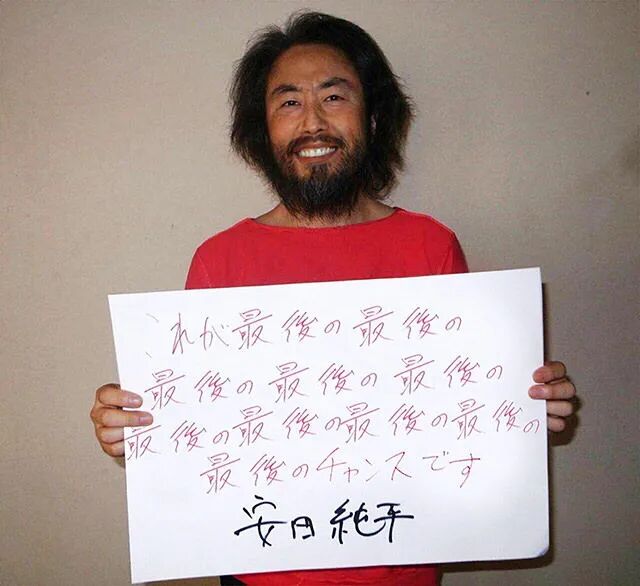 これが最後の最後の
最後の最後の最後の
最後の最後の最後の最後の
最後のチャンスです
安田純平